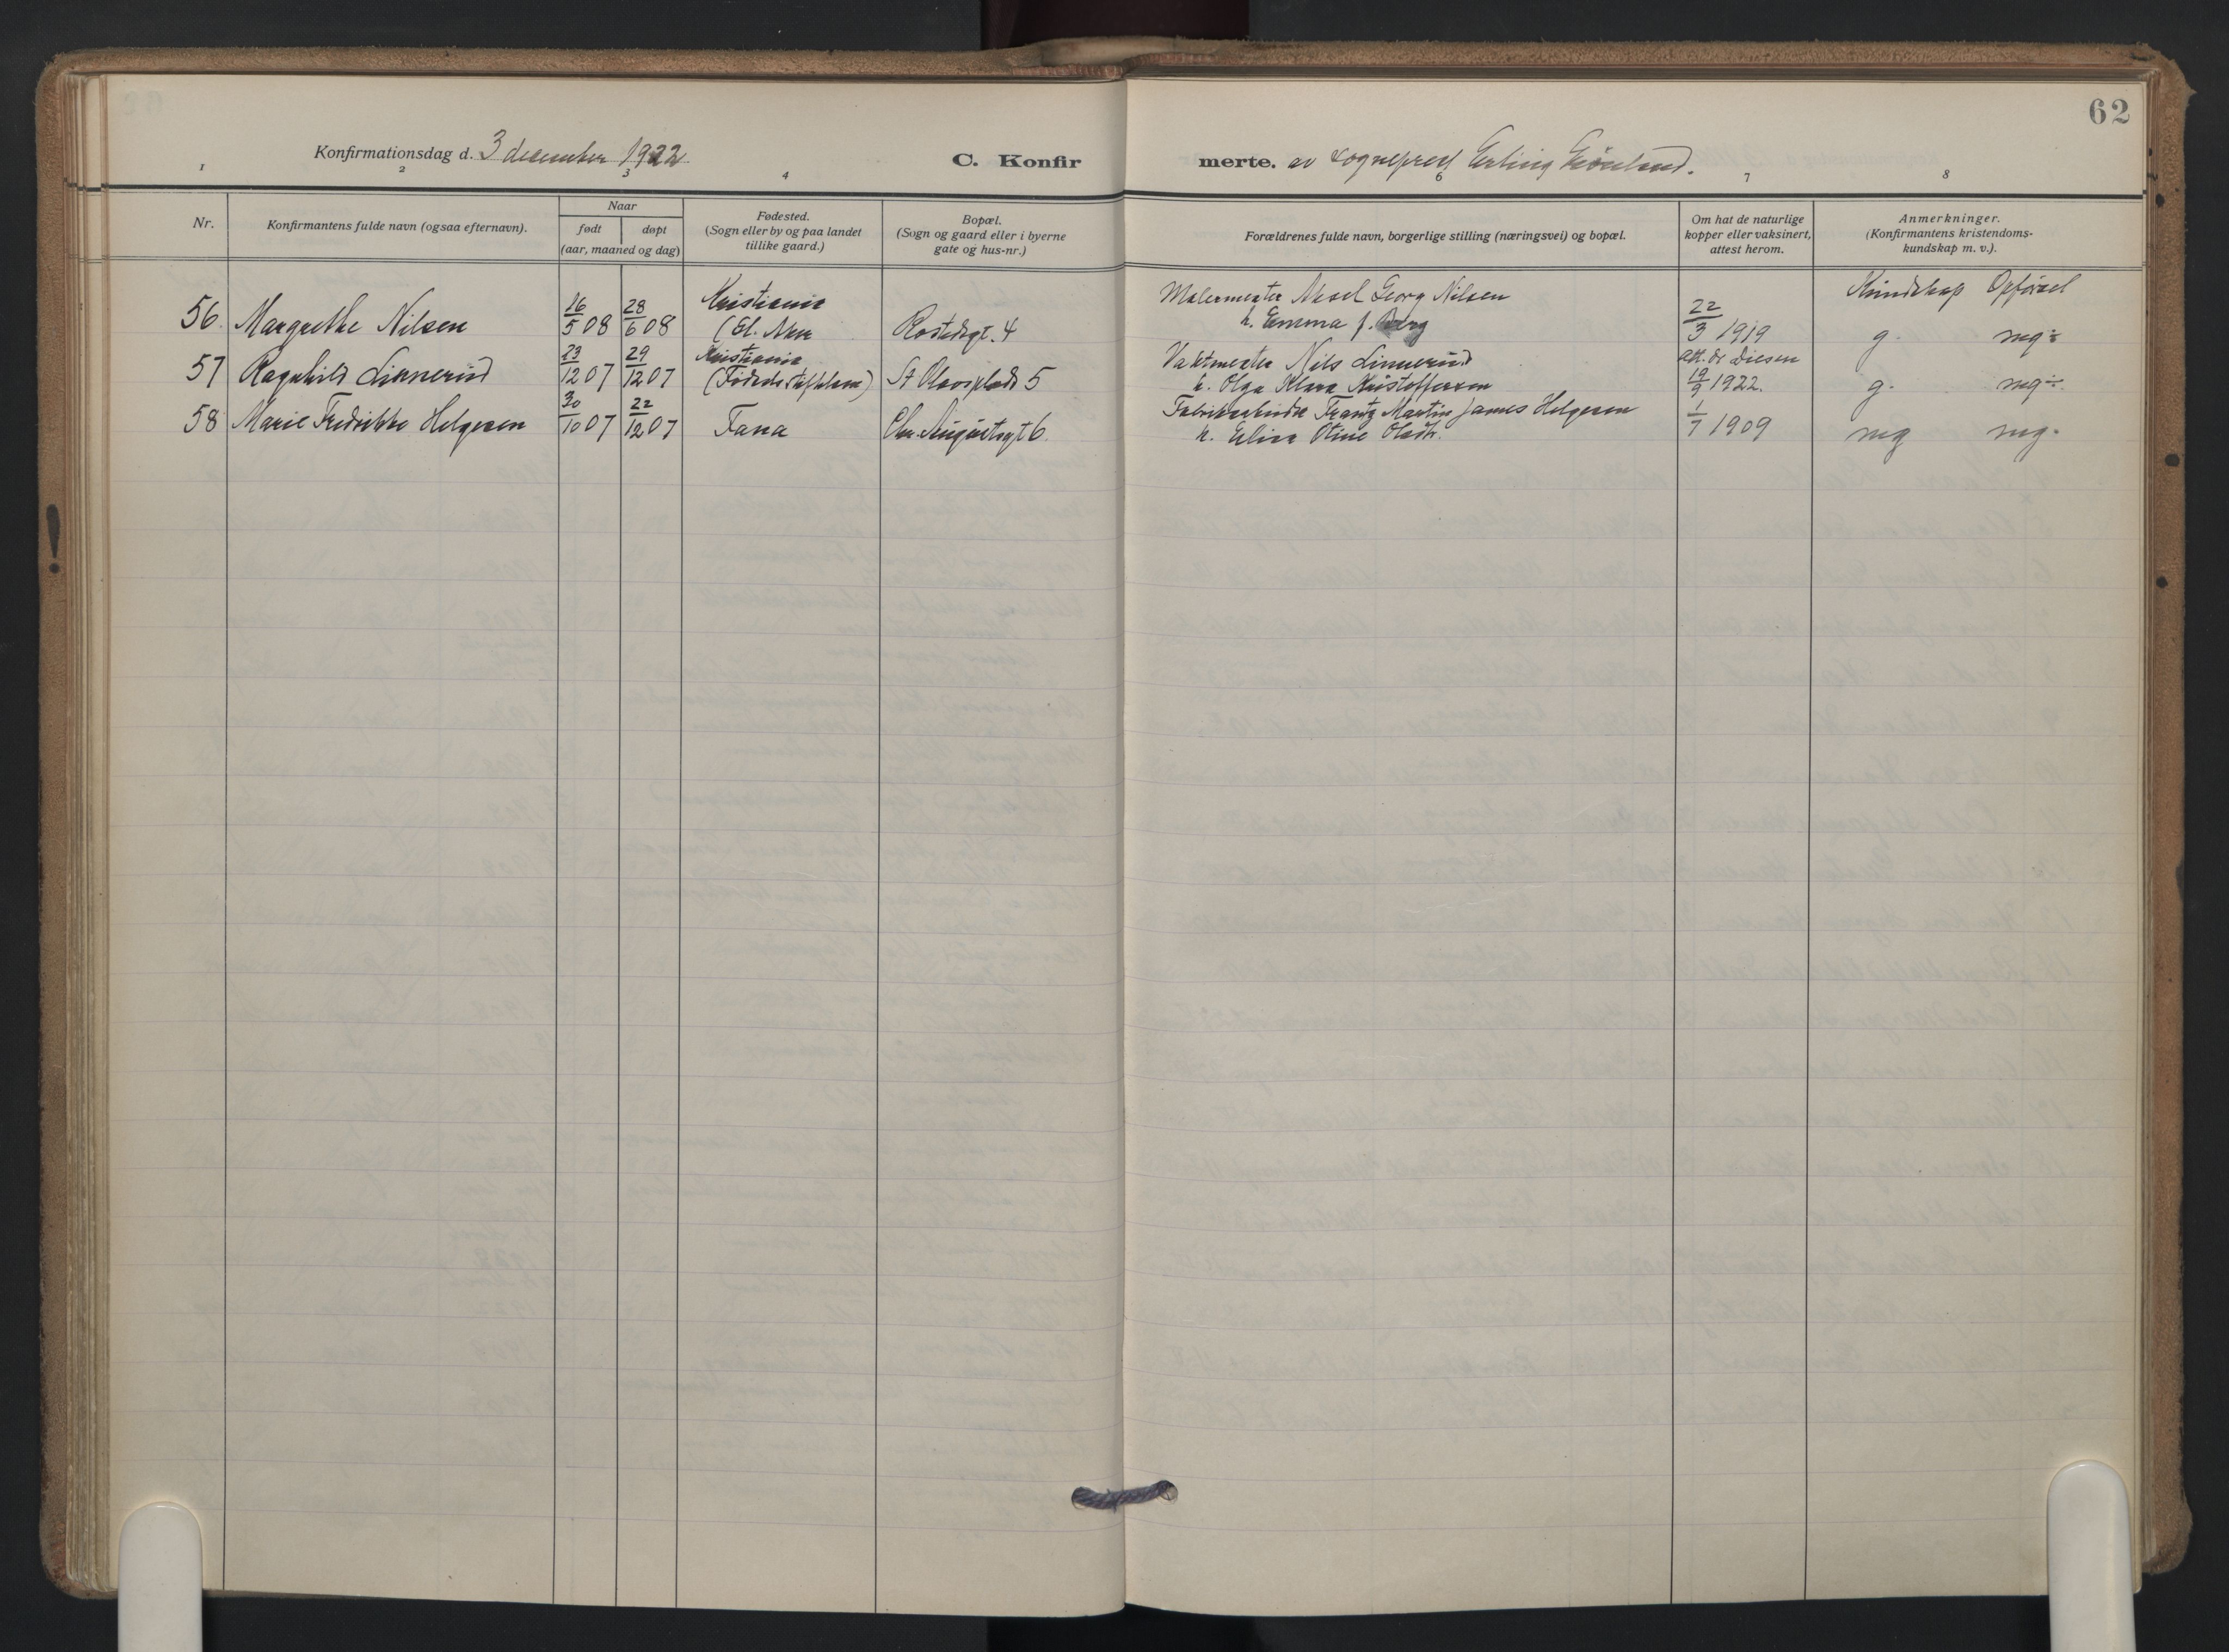 62
Konfirmationsdag d. 3 december 1922
C. Konfir
merte. av sogneprest Erling Grønland.
1 2 3 4 6 7 8
Nr.
Konfirmantens fulde navn (ogsaa efternavn).
Naar
født døpt
(aar, maaned og dag)
Fødested.
(Sogn eller by og paa landet
tillike gaard.)
Bopæl.
(Sogn og gaard eller i byerne
gate og hus-nr.)
Forældrenes fulde navn, borgerlige stilling (næringsvei) og bopæl.
Om hat de naturlige
kopper eller vaksinert,
attest herom.
Anmerkninger.
(Konfirmantens kristendoms-
kundskap m. v.).
Kundskap Opførsel
56. Margrethe Nilsen 16/5 08 28/6 08 Kristiania
(Gl. Aker Rostedsgt. 4
Malermester Aksel Georg Nilsen
h. Emma f. Berg
22/3 1919 g. mg÷
57 Ragnhild Linnerud 23/12 07 29/12 07 Kristiania
(Fødselsstiftelsen) St Olavsplads 5
Vaktmester Nils Linnerud
h. Olga Klara Kristoffersen
att. dr Diesen
19/9 1922. g. mg÷.
58 Marie Fredrikke Helgesen 30/10 07 22/12 07 Tana Chr. Augustsgt 6.
Fabrikarbeider Frantz Martin James Helgesen
h. Elisa Otine Olsdtr.
1/7 1909 mg mg.